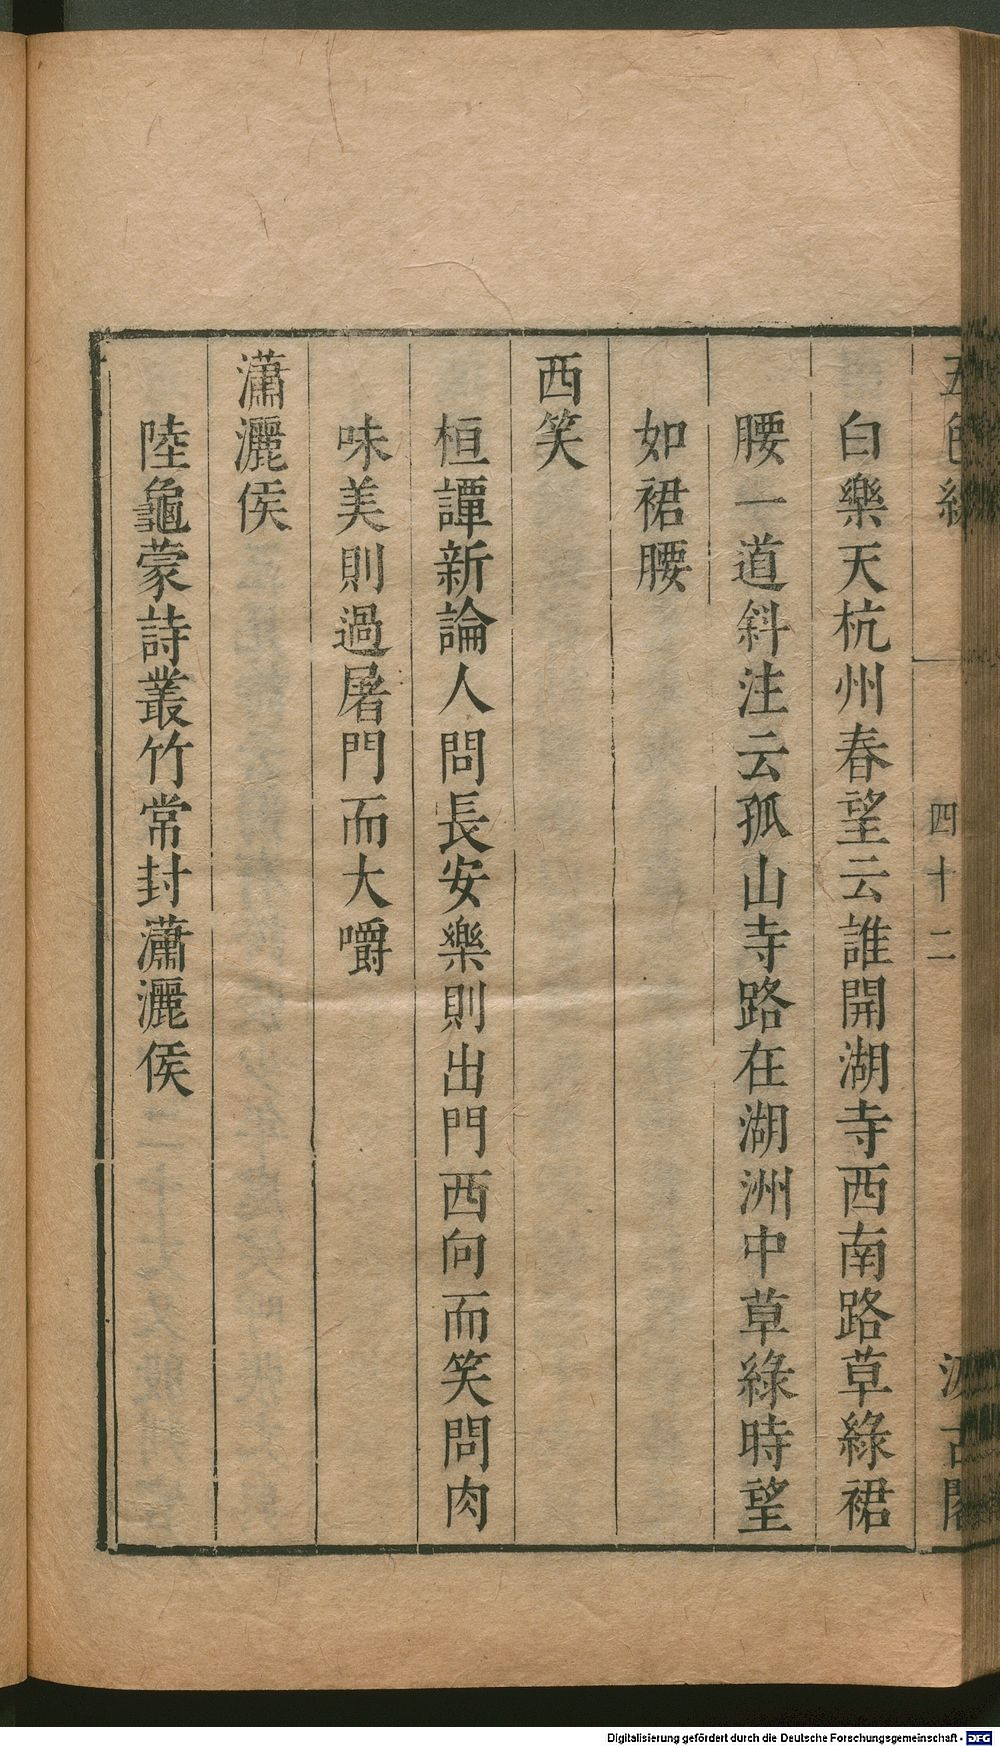 五色線
四十二
汲古閣
白樂天杭州春望云誰開湖寺西南路草綠裙
腰一道斜注云孤山寺路在湖洲中草綠時望
如裙腰
西笑
桓譚新論人問長安樂則出門西向而笑問肉
味美則過屠門而大嚼
瀟灑侯
陸龜蒙詩叢竹常封瀟灑侯
Digitalisierung gefördert durch die Deutsche Forschungsgemeinschaft - DFG